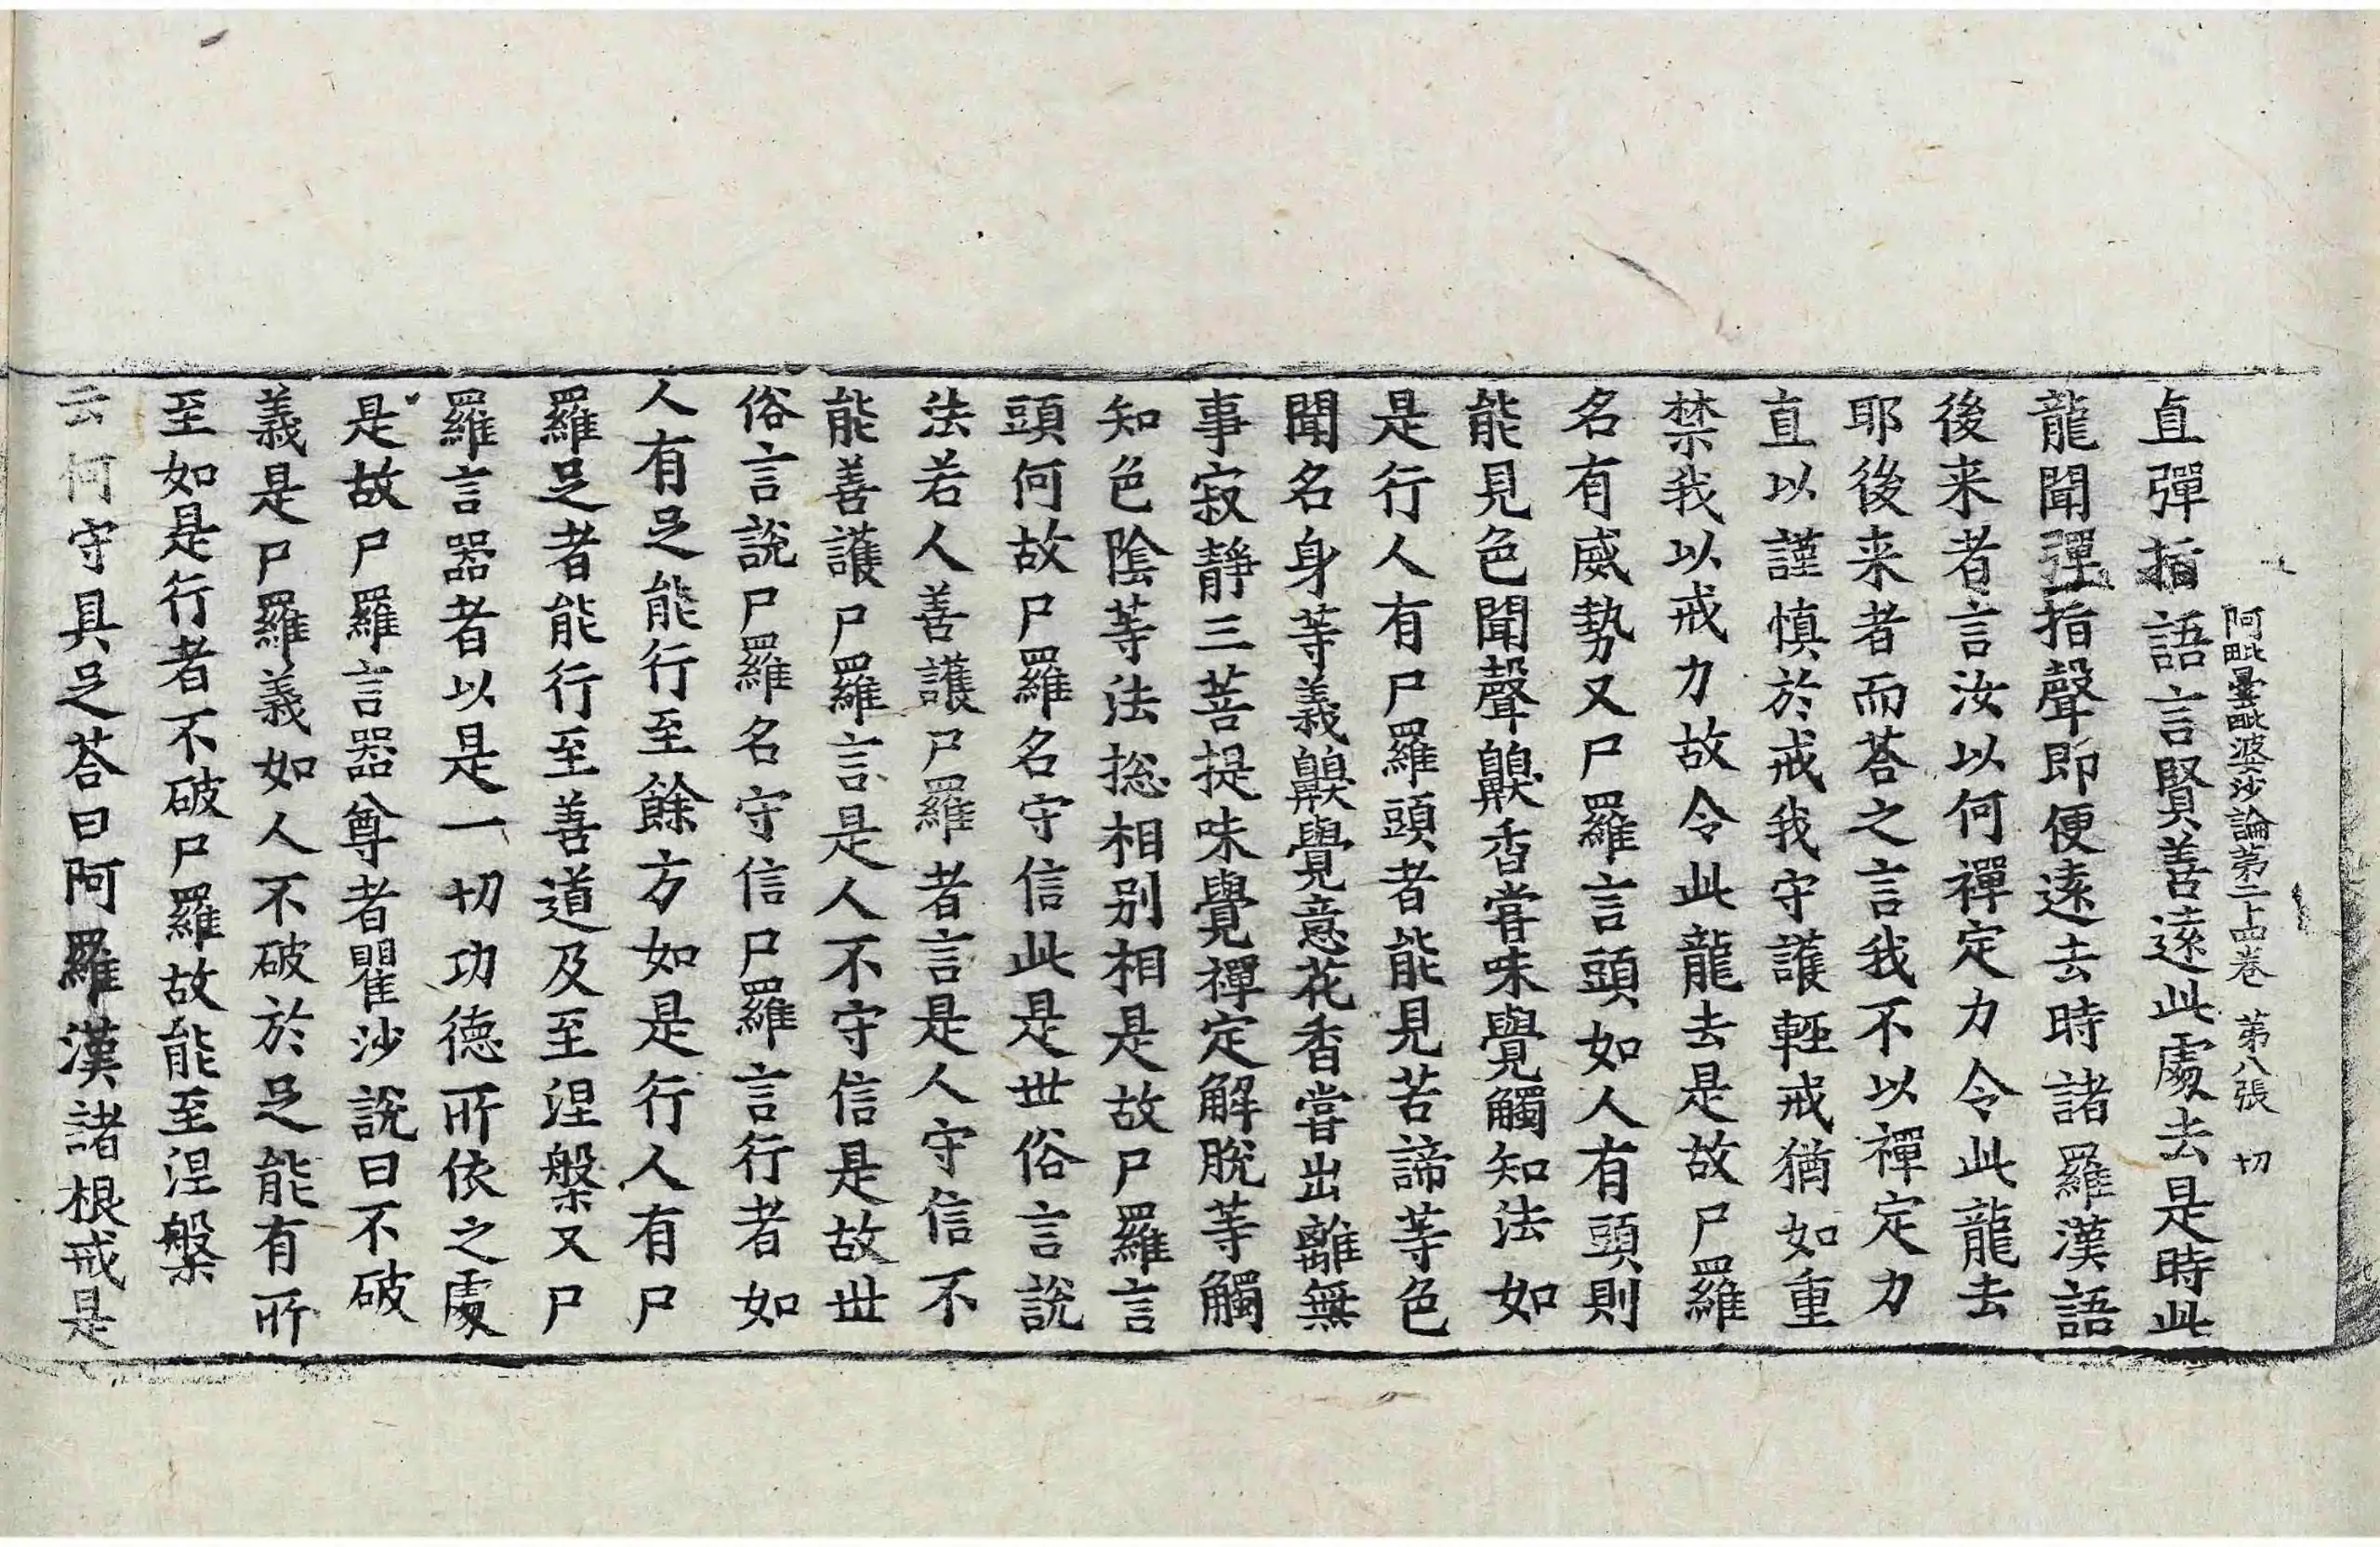 阿毗曇毗婆沙論第二十四卷 第八張 切
直彈指語言賢善遠此處去是時此
龍聞彈指聲即便遠去時諸羅漢語
後来者言汝以何禪定力令此龍去
耶後来者而荅之言我不以禪定力
直以謹慎於戒我守護輕戒猶如重
禁我以戒力故令此龍去是故尸羅
名有威勢又尸羅言頭如人有頭則
能見色聞聲齅香甞味覺觸知法如
是行人有尸羅頭者能見苦諦等色
聞名身等義齅覺意花香嘗出離無
事寂靜三菩提味覺禪定解脫等觸
知色陰等法捴相别相是故尸羅言
頭何故尸羅名守信此是世俗言說
法若人善護尸羅者言是人守信不
能善護尸羅言是人不守信是故世
俗言說尸羅名守信尸羅言行者如
人有足能行至餘方如是行人有尸
羅足者能行至善道及至涅槃又尸
羅言器者以是一切功德所依之處
是故尸羅言器尊者瞿沙說曰不破
義是尸羅義如人不破於足能有所
至如是行者不破尸羅故能至涅槃
云何守具足荅曰阿羅漢諸根戒是